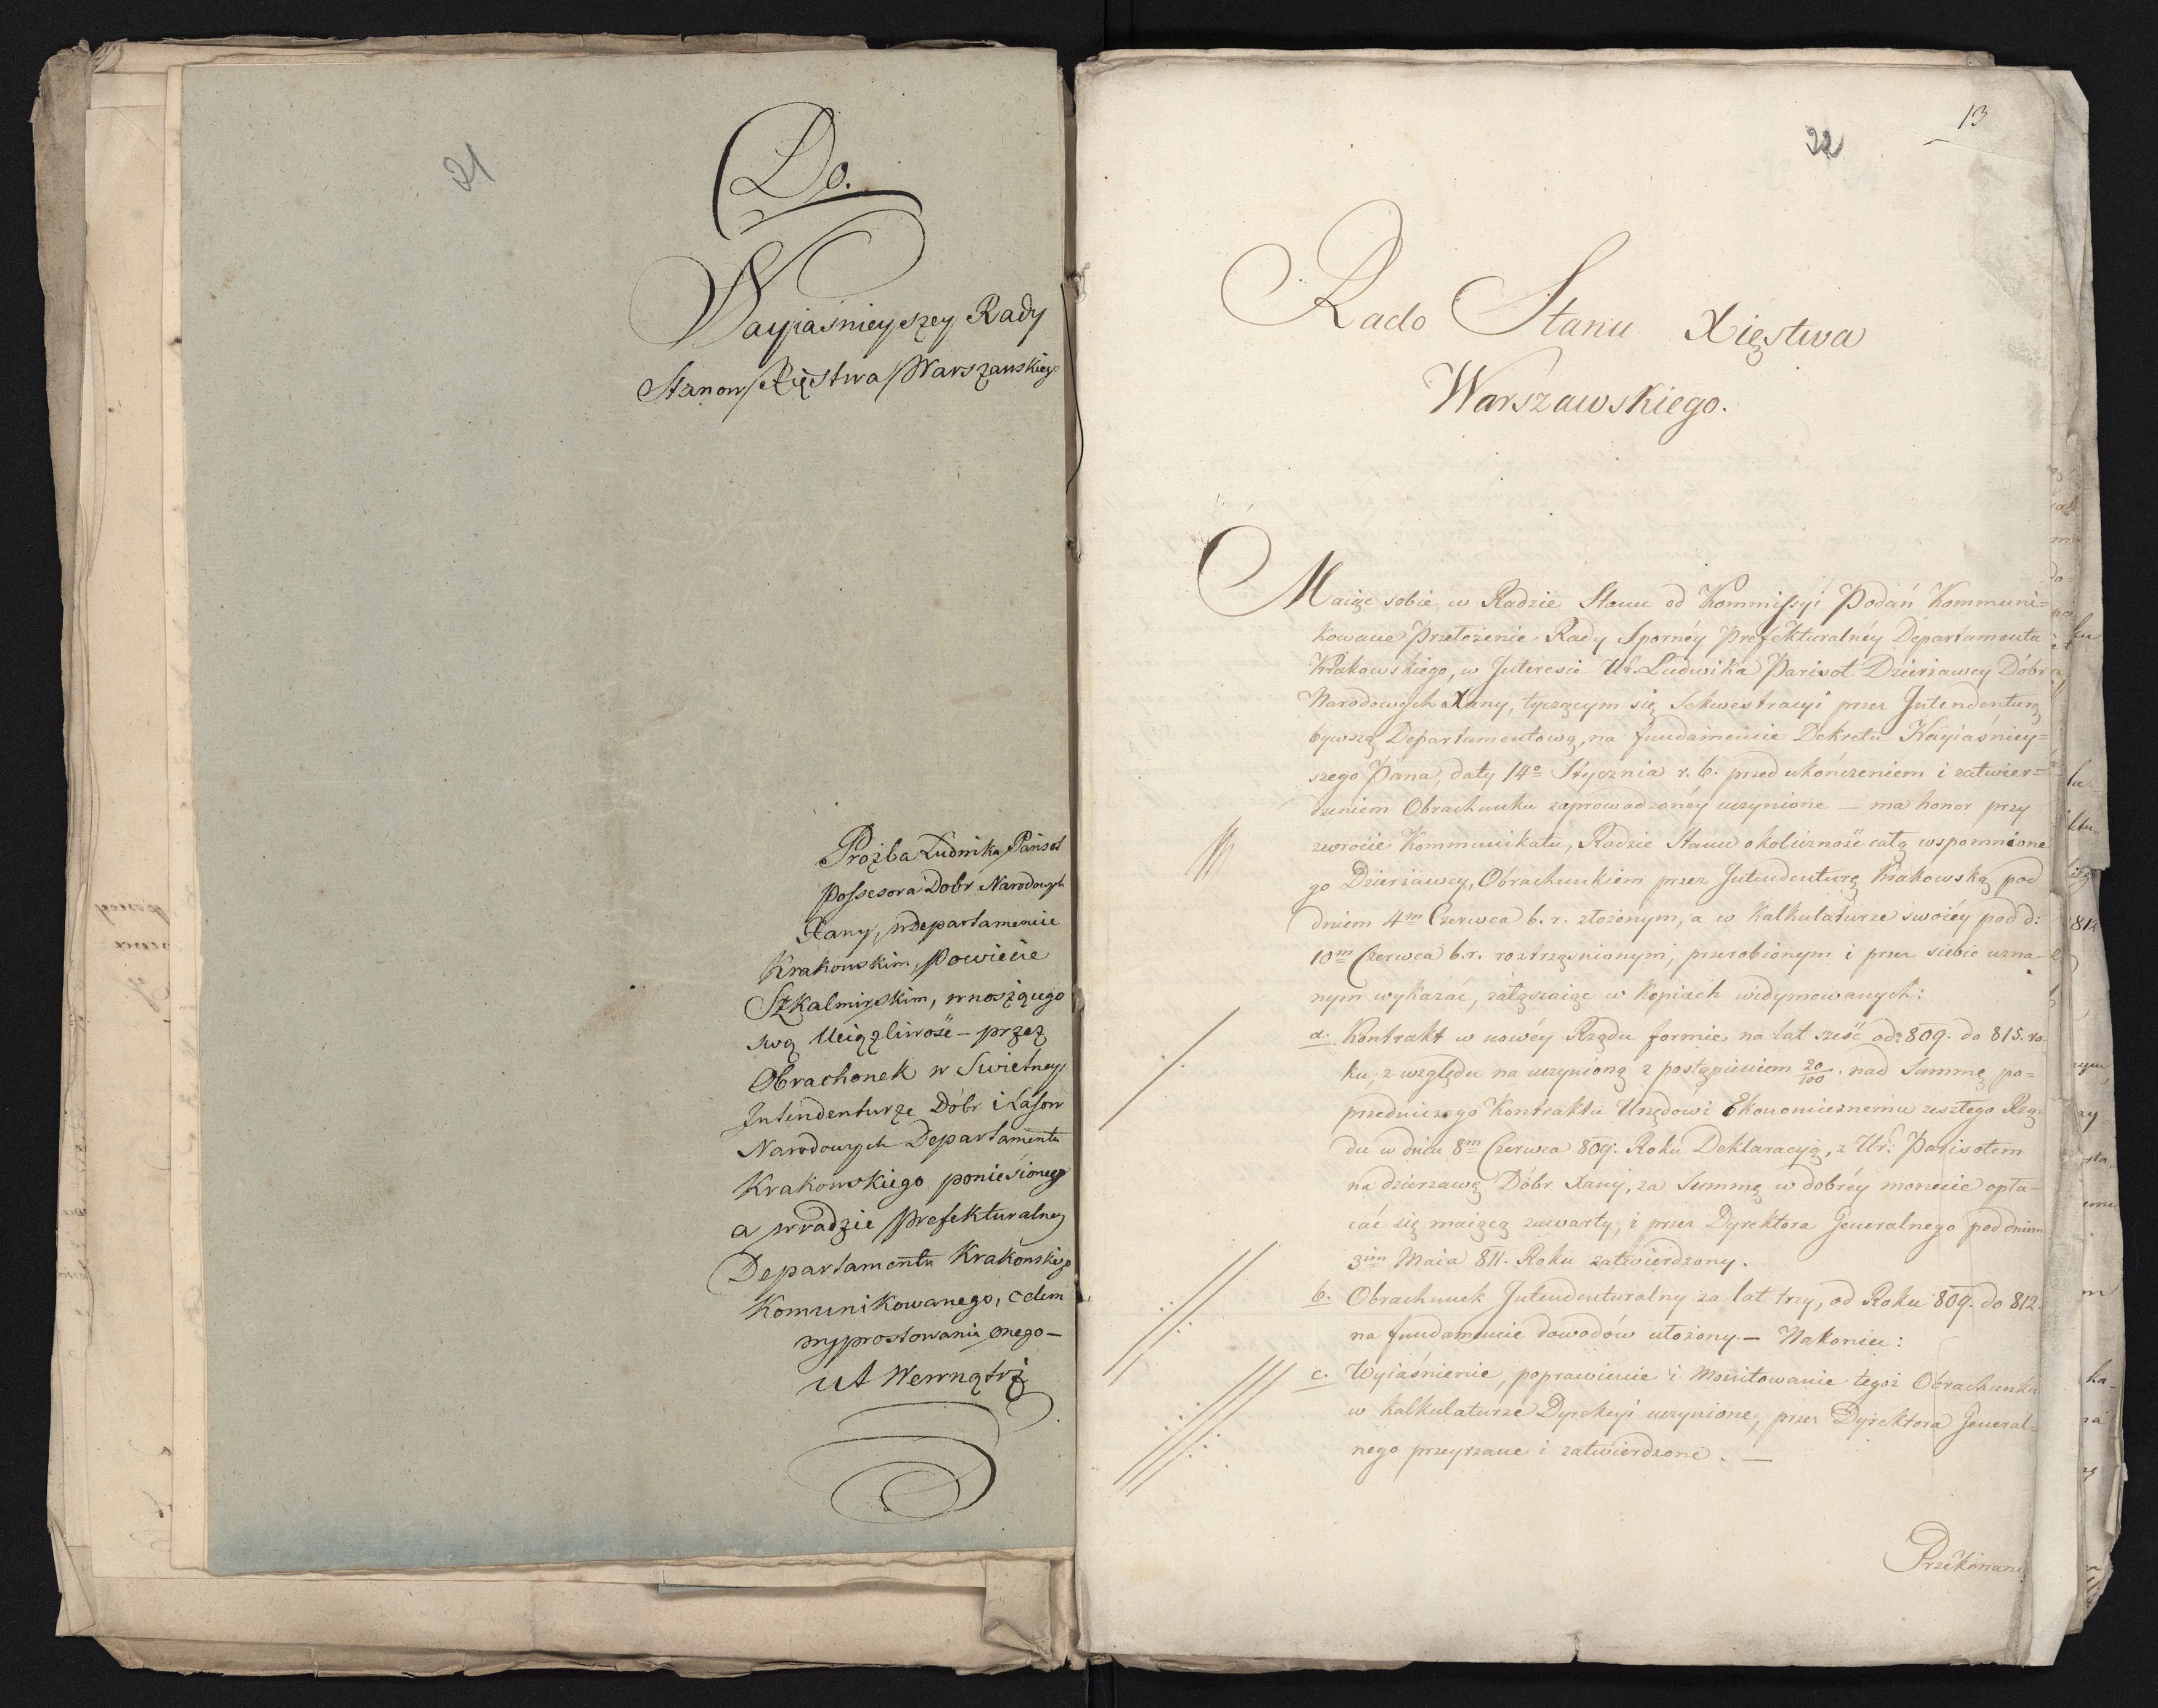 21
Do.
Nayiaśnieyszey Rady
Stanow Xięstwa Warszawskiego
Proźba Ludwika Parisot
Possesora Dobr Narodowych
Xany, w Departamencie
Krakowskim, Powiecie
Szkalmirskim, wnoszągugo
swą Uciążliwość – przez
Obrachonek w Swietney
Intendenturze Dóbr i Lasow
Narodowych Departamentu
Krakowskiego poniesioney
a w radzie Prefekturalney
Departamentu Krakowskiego
Komunikowanego, celem
wyprostowania onego –
ut Wewnątrz
13
22
Rado Stanu Xięstwa
Warszawskiego.
Maiąc sobie w Radzie Stanu od Kommissyi Podań Kommuni=
kowane Przełożenie Rady Sporney Prefekturalney Departamentu
Krakowskiego, w Interesie Ur. Ludwika Parisot Dzierzawcy Dóbr
Narodowych Xany, tyczącym się Sekwestracyi przez Intendenturę
bywszą Departamentową, na fundamencie Dekretu Nayiaśniey=
szego Pana, daty 14o Stycznia r. b. przed ukończeniem i zatwier=
dzeniem Obrachunku zaprowadzoney uczynione – ma honor przy
zwrocie Kommunikatu, Radzie Stanu okoliczność całą wspomnione
go Dzierzawcy, Obrachunkiem przez Intendenturę Krakowską pod
dniem 4m Czerwca b. r. złożonym, a w Kalkulaturze swoiéy pod d:
10m Czerwca b. r. roztrząśnionym, przerobionym i przez siebie uzna-
nym wykazać, załączaiąc w Kopiach widymowanych:
a. Kontrakt w nowéy Rządu formie na lat sześć od 809. do 815. ro
ku, z względu na uczynioną z postąpieniem 20/100. nad Summę po=
przedniczego Kontraktu Urzędowi Ekonomicznemu zeszłego Rzą=
du w dniu 8m Czerwca 809. Roku Deklaracyą, z Ur. Parisotem
na dzierzawę Dóbr Xany, za Summę w dobréy monecie opła-
cać się maiącą zawarty, i przez Dyrektora Jeneralnego pod dniem
3im Maia 811. Roku zatwierdzony.
b. Obrachunek Intendenturalny za lat trzy, od Roku 809. do 812.
na fundamencie dowodów ułożony. – Nakoniec:
c. Wyiaśnienie, poprawienie i Monitowanie tegoż Obrachunku
w Kalkulaturze Dyrekcyi uczynione, przez Dyrektora Jeneral=
nego przeyrzane i zatwierdzone. –
Przekonani